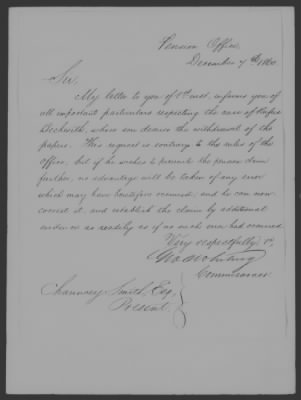 Pension Office,
December 7th, 1860.
Sir,
My letter to you of 5th inst. informs you of
all important particulars respecting the case of Rufus
Beckwith, whose son desires the withdrawal of the
papers. This request is contrary to the rules of the
office, but if he wishes to prosecute the pension claim
further, no advantage will be taken of any error
which may have heretofore occurred, and he can now
correct it, and establish the claim by additional
evidence as readily as if no such error had occurred.
Very respectfully,
Geo. C. Whiting
Commissioner.
Chauncey Smith, Esq.,
Present.